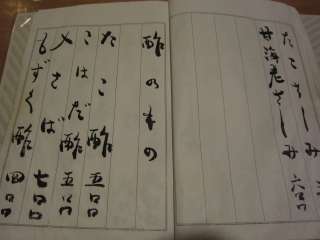 たこさしみ
甘海老さしみ 六〇〇
酢のもの
たこ酢 五〇〇
こはだ酢 五〇〇
〆さば 七〇〇
もずく酢 四〇〇